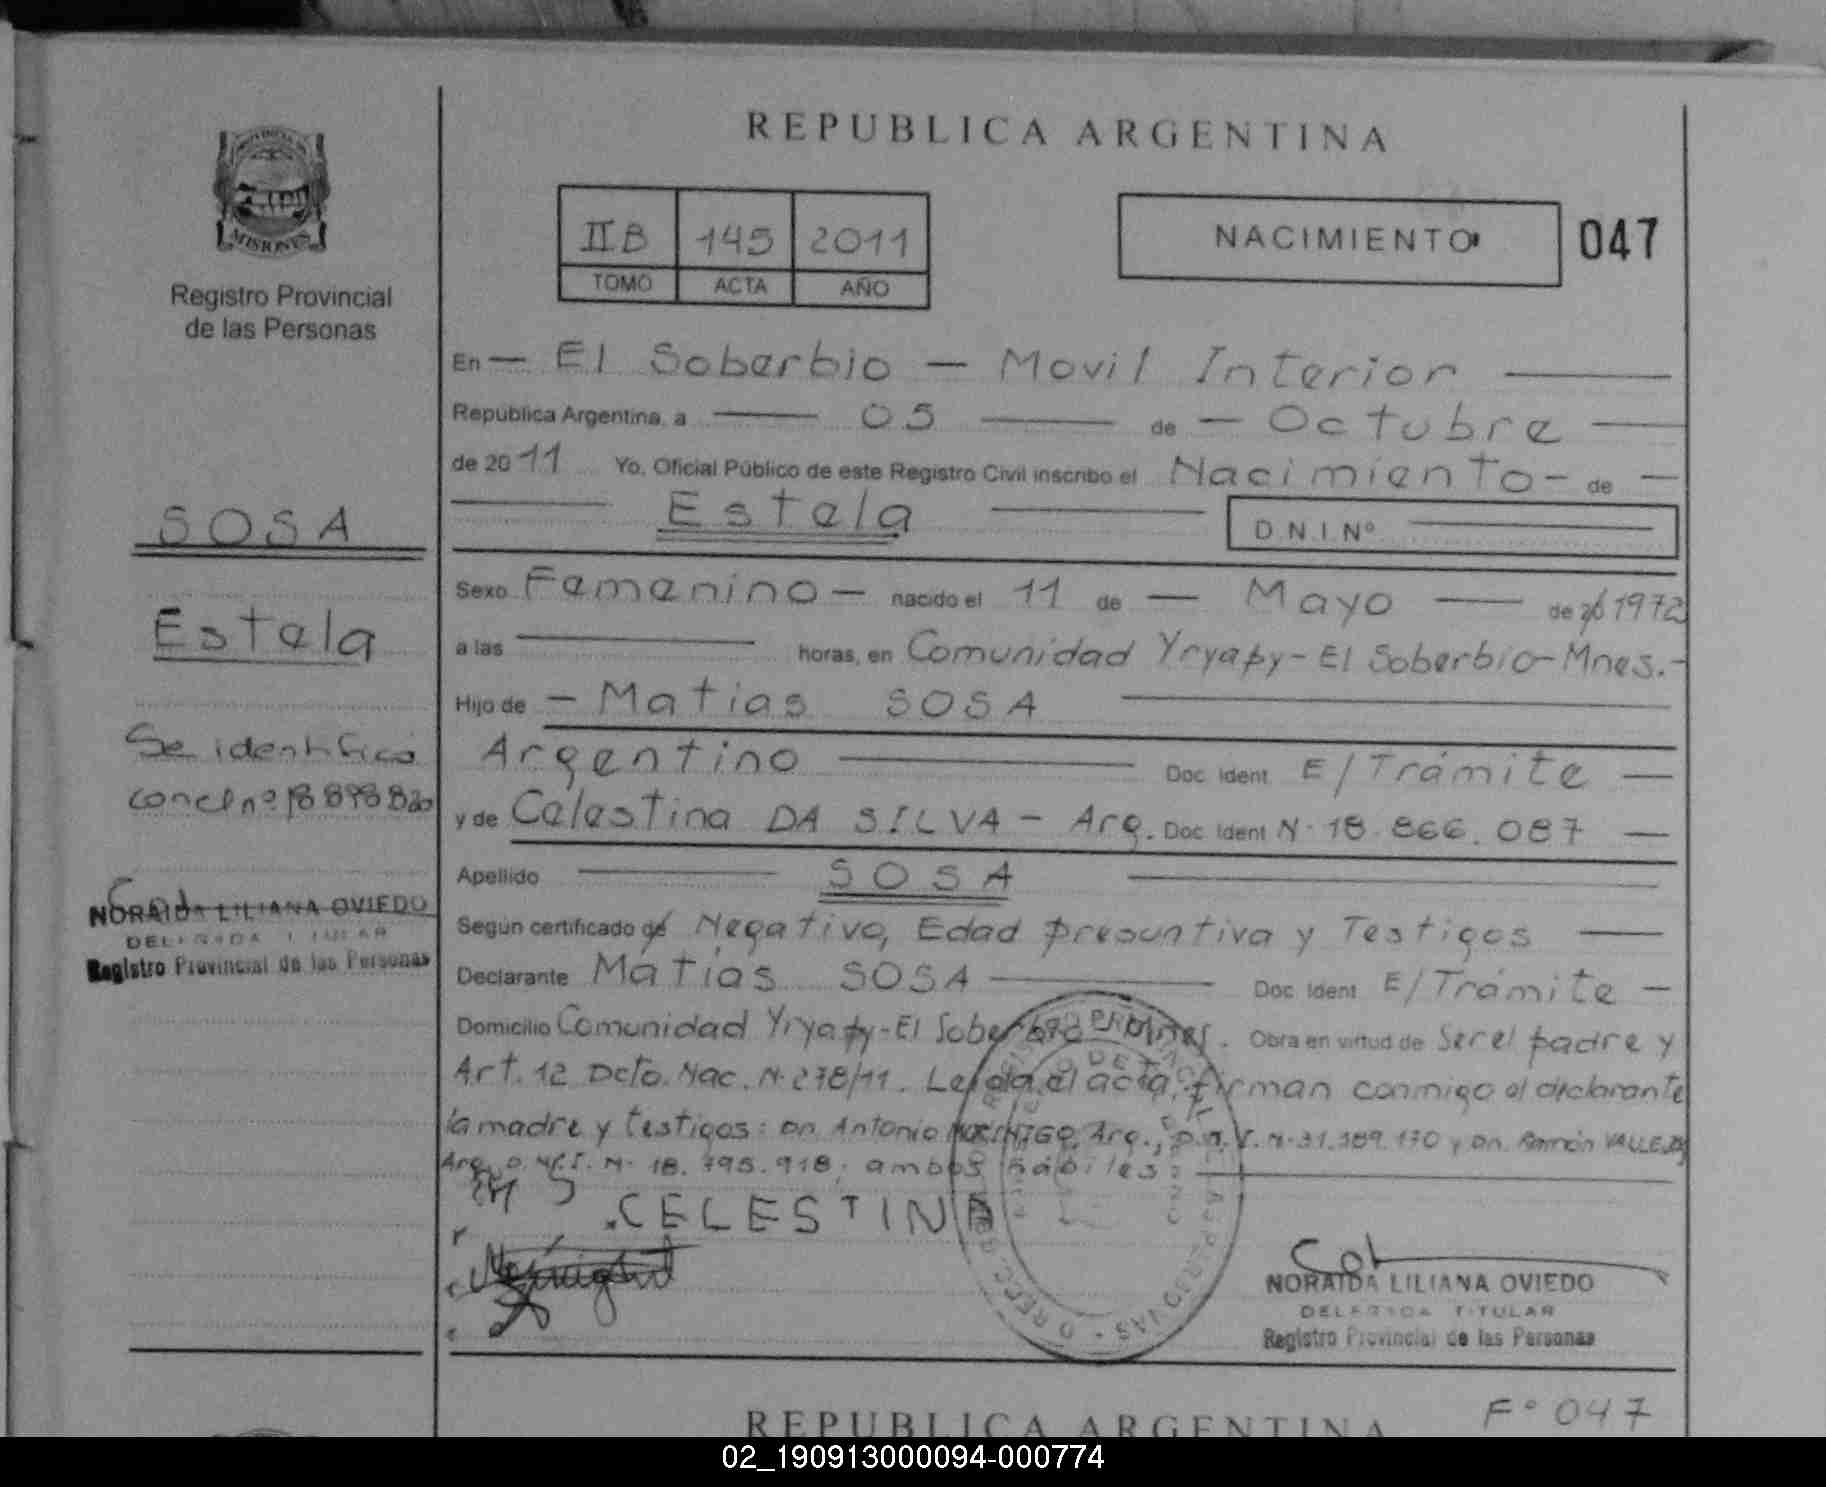 REPUBLICA ARGENTINA
MISIONES
Registro Provincial
de las Personas
II B 145 2011
TOMO ACTA AÑO
NACIMIENTO 047
En — El Soberbio — Movil Interior —
República Argentina, a — 05 — de — Octubre —
de 2011 Yo, Oficial Público de este Registro Civil inscribo el Nacimiento - de —
— Estela — D.N.I.Nº —
Sexo Femenino — nacido el 11 de — Mayo — de 1972
a las — horas, en Comunidad Yryapy - El Soberbio - Mnes. -
Hijo de — Matias SOSA —
Argentino — Doc. Ident. E/Trámite —
y de Celestina DA SILVA - Arg. Doc. Ident. N· 18.866.087 —
Apellido — SOSA —
Según certificado de Negativo, Edad presuntiva y Testigos —
Declarante Matías SOSA — Doc. Ident. E/Trámite —
Domicilio Comunidad Yryapy - El Soberbio Mnes. Obra en virtud de Ser el padre y
Art. 12 Dcto. Nac. N· 278/11. Leida el acta, firman conmigo el declarante
la madre y testigos: Dn. Antonio Arg., D.N.I. N· 31.389.170 y Dn. Ramón VALLEJOS
Arg. D.N.I. N· 18.795.918, ambos hábiles —
CELESTINA
NORAIDA LILIANA OVIEDO
DELEGADA TITULAR
Registro Provincial de las Personas
SOSA
Estela
Se identificó
con el nº 18898820
NORAIDA LILIANA OVIEDO
DELEGADA TITULAR
Registro Provincial de las Personas
Fº 047
REPUBLICA ARGENTINA
02_190913000094-000774